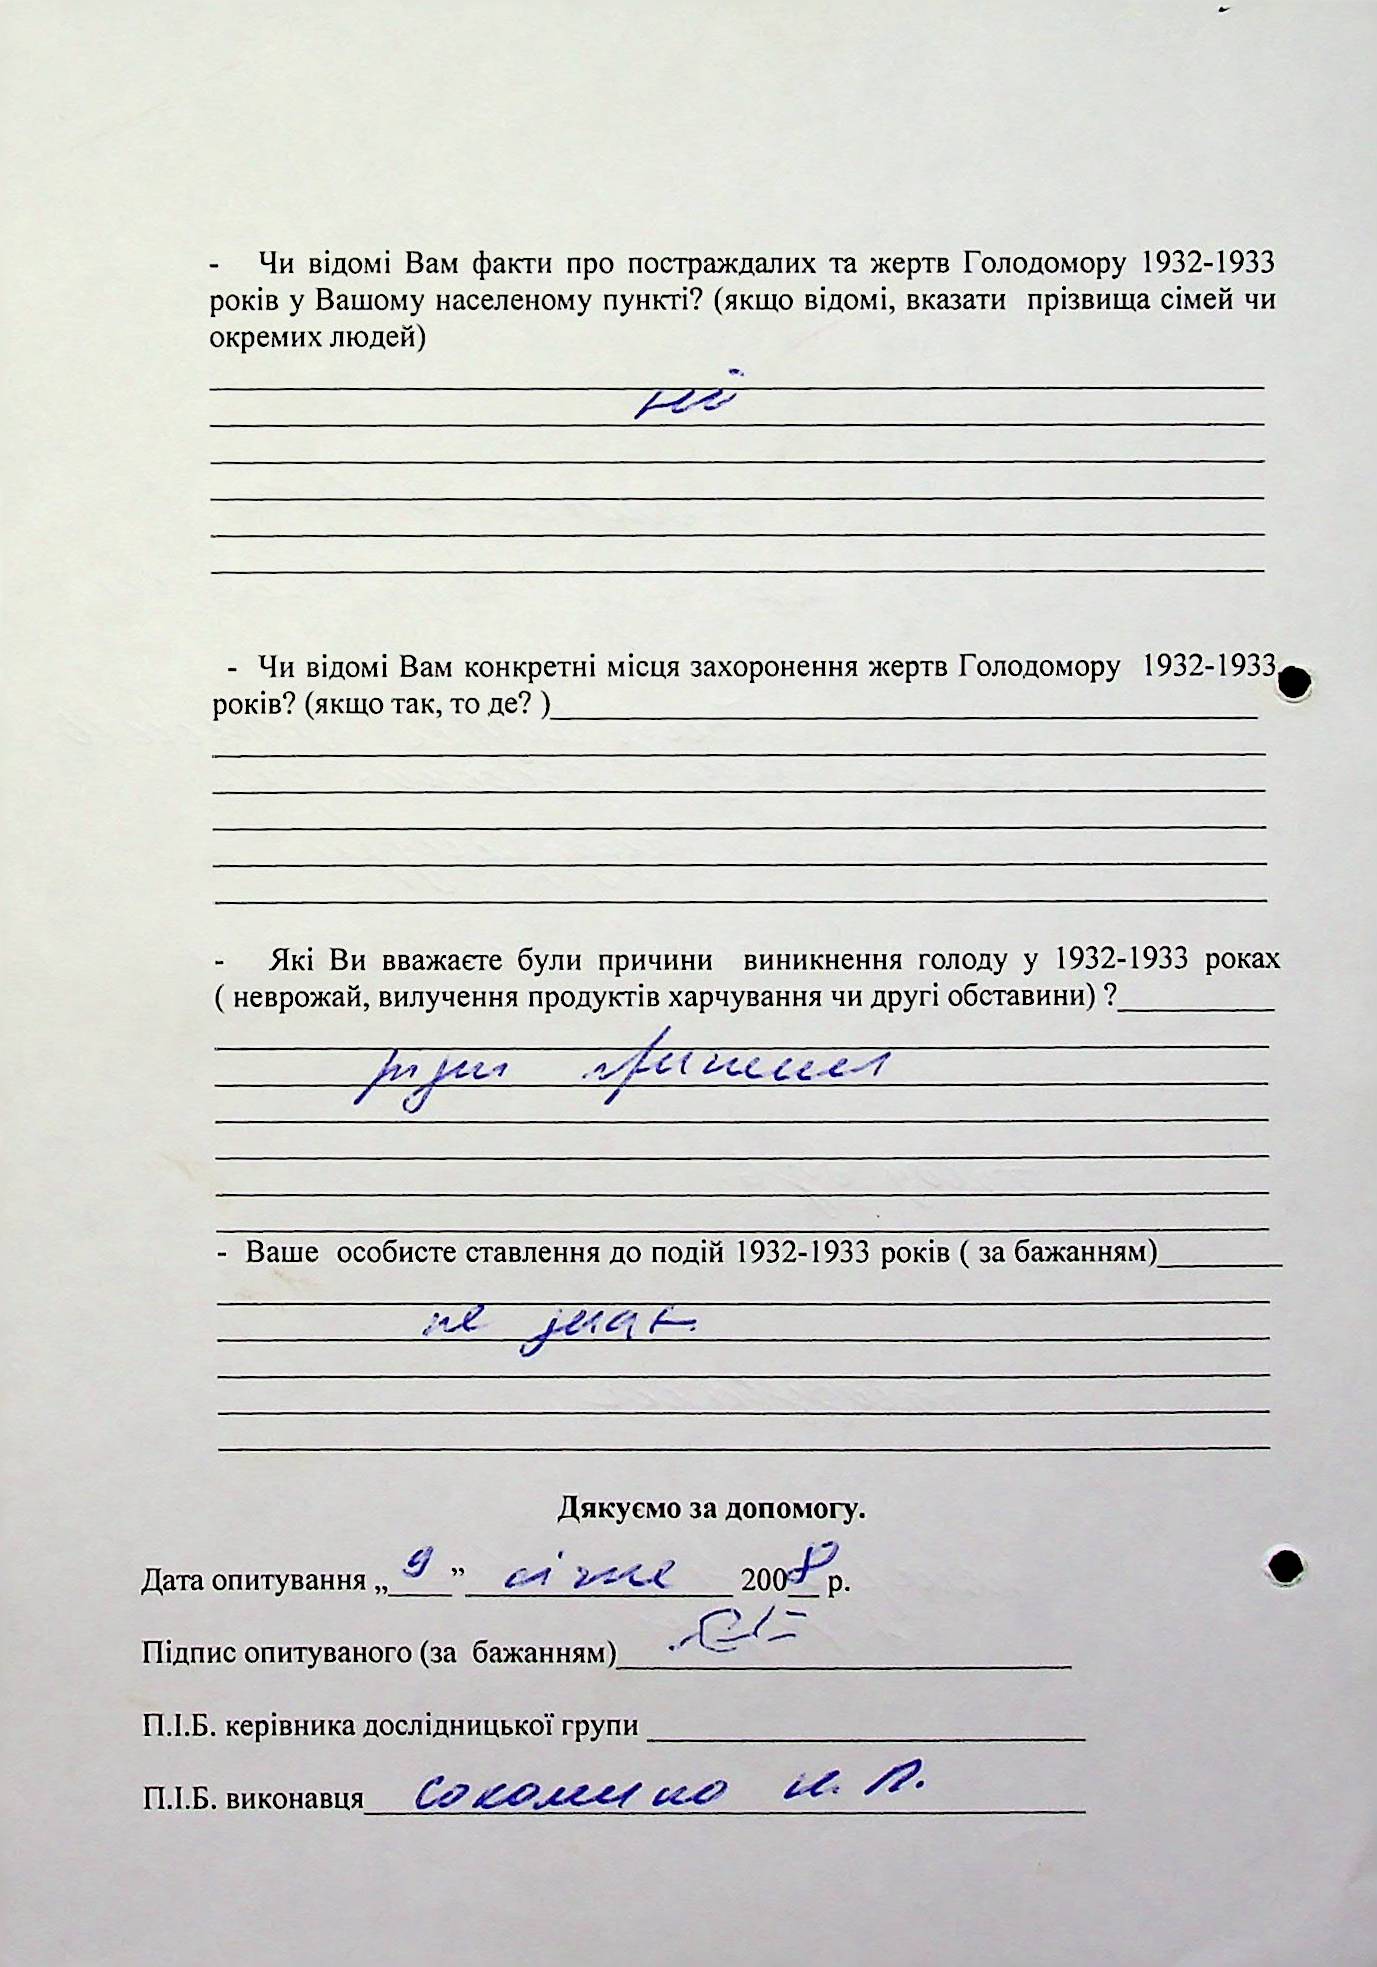 - Чи відомі Вам факти про постраждалих та жертв Голодомору 1932-1933
років у Вашому населеному пункті? (якщо відомі, вказати прізвища сімей чи
окремих людей)
ні
- Чи відомі Вам конкретні місця захоронення жертв Голодомору 1932-1933
років? (якщо так, то де? )
- Які Ви вважаєте були причини виникнення голоду у 1932-1933 роках
( неврожай, вилучення продуктів харчування чи другі обставини) ?
- Ваше особисте ставлення до подій 1932-1933 років ( за бажанням)
не знаю
Дякуємо за допомогу.
Дата опитування „ 9 ” січня 2008 р.
Підпис опитуваного (за бажанням)
П.І.Б. керівника дослідницької групи
П.І.Б. виконавця